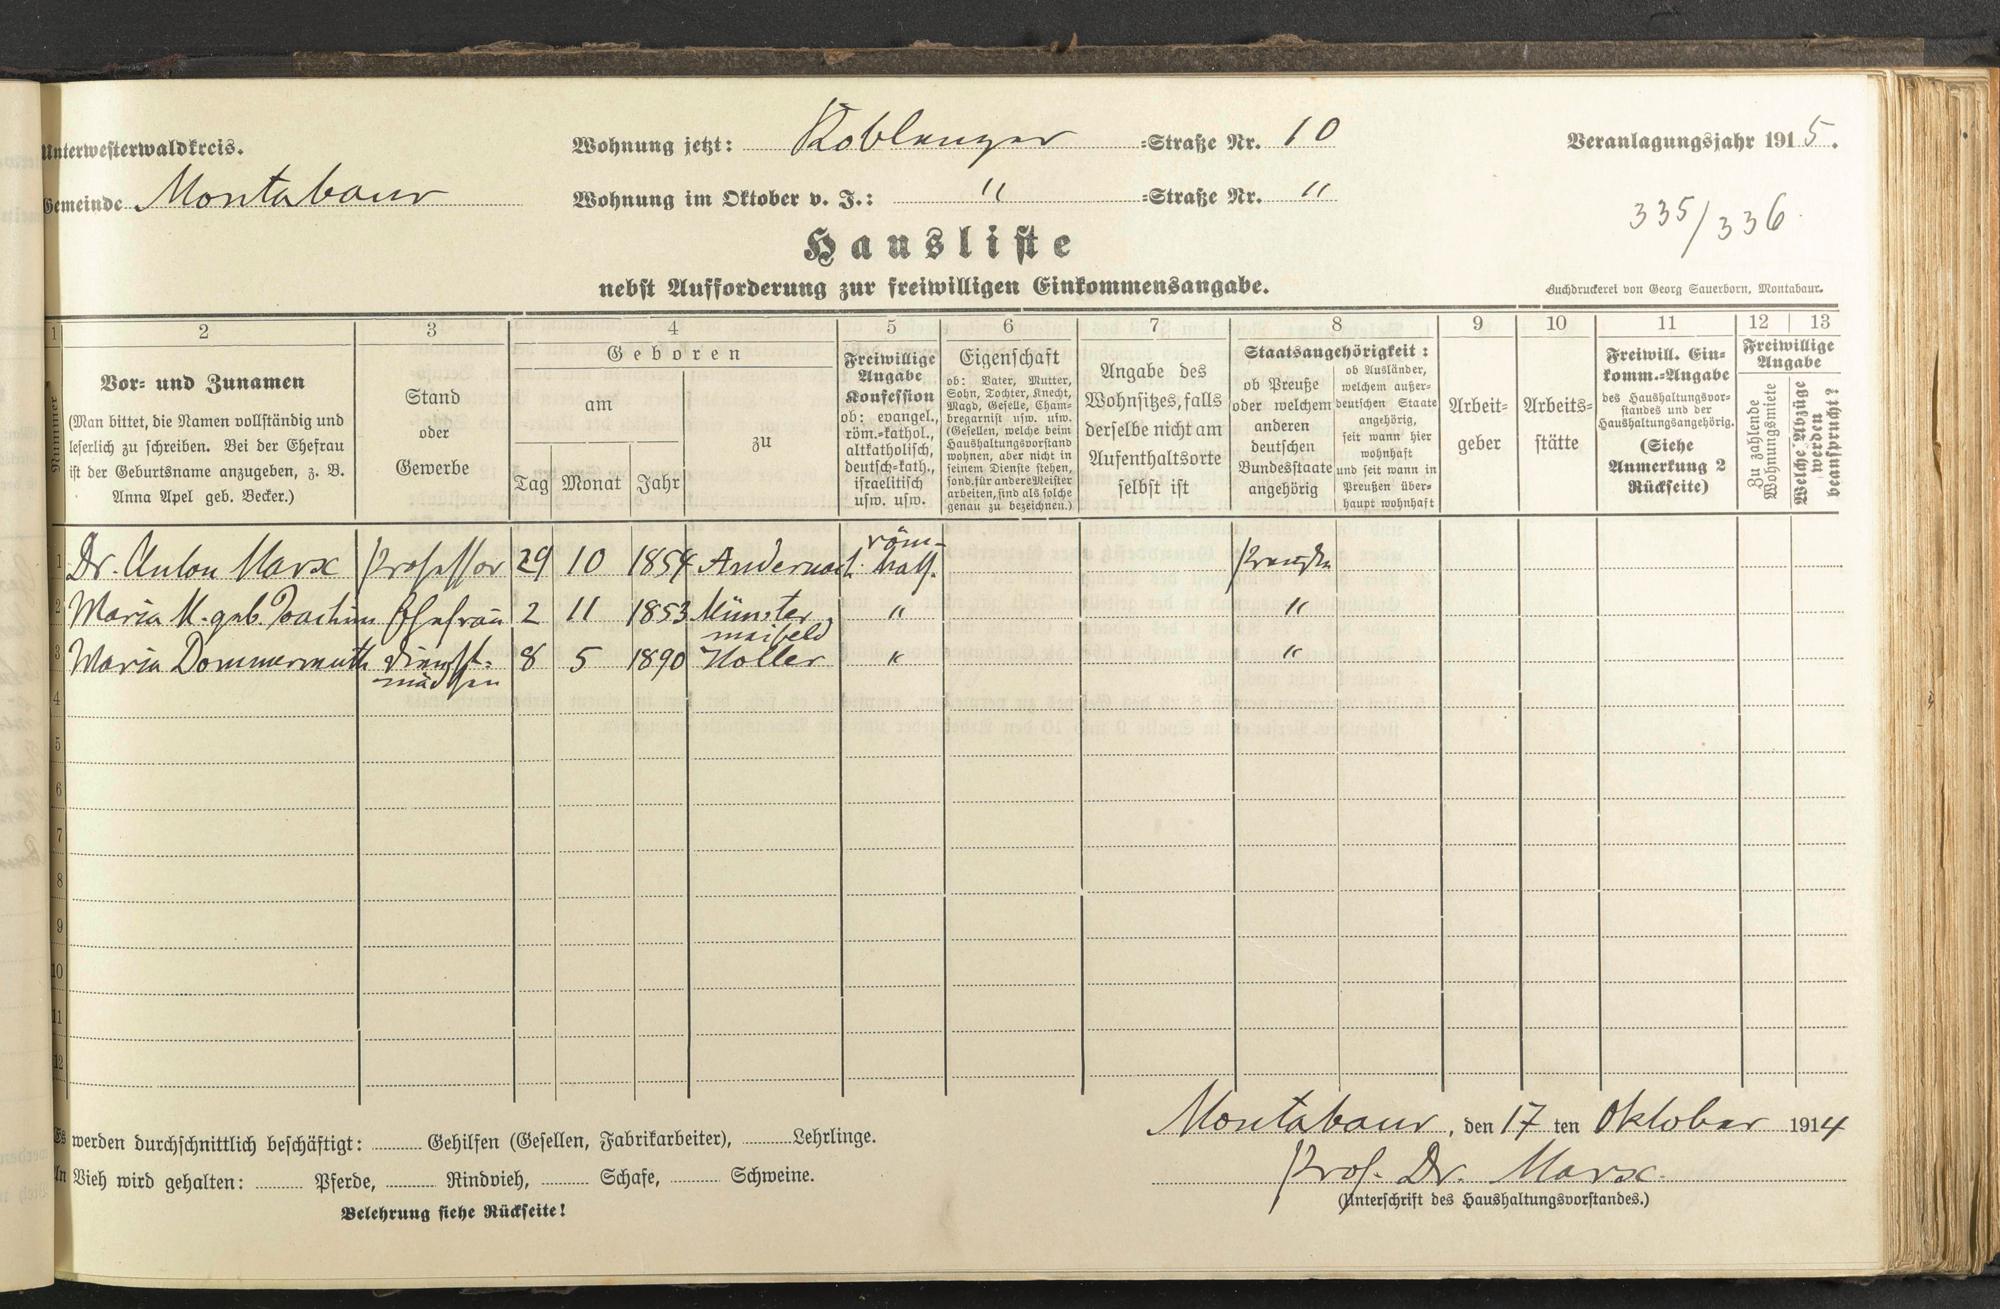 Unterwesterwaldkreis.
Wohnung jetzt: Koblenzer =Straße Nr. 10
Veranlagungsjahr 1915.
Gemeinde Montabaur
Wohnung im Oktober v. J.: " =Straße Nr. "
335/336
Hausliste
nebst Aufforderung zur freiwilligen Einkommensangabe.
Buchdruckerei von Georg Sauerborn, Montabaur.
1 2 3 4 5 6 7 8 9 10 11 12 13
Nummer
Vor= und Zunamen
(Man bittet, die Namen vollständig und
leserlich zu schreiben. Bei der Ehefrau
ist der Geburtsname anzugeben, z. B.
Anna Apel geb. Becker.)
Stand
oder
Gewerbe
Geboren
am
Tag Monat Jahr
zu
Freiwillige
Angabe
Konfession
ob: evangel.,
röm.=kathol.,
altkatholisch,
deutsch=kath.,
israelitisch
usw. usw.
Eigenschaft
ob: Vater, Mutter,
Sohn, Tochter, Knecht,
Magd, Geselle, Cham=
bregarnist usw. usw.
(Gesellen, welche beim
Haushaltungsvorstand
wohnen, aber nicht in
seinem Dienste stehen,
sond. für andere Meister
arbeiten, sind als solche
genau zu bezeichnen.)
Angabe des
Wohnsitzes, falls
derselbe nicht am
Aufenthaltsorte
selbst ist
Staatsangehörigkeit:
ob Preuße
oder welchem
anderen
deutschen
Bundesstaate
angehörig
ob Ausländer,
welchem außer=
deutschen Staate
angehörig,
seit wann hier
wohnhaft
und seit wann in
Preußen über=
haupt wohnhaft
Arbeit=
geber
Arbeits=
stätte
Freiwill. Ein=
komm.=Angabe
des Haushaltungsvor=
standes und der
Haushaltungsangehörig.
(Siehe
Anmerkung 2
Rückseite)
Freiwillige
Angabe
Zu zahlende
Wohnungsmiete
Welche Abzüge
werden
beansprucht?
1 Dr. Anton Marx Professor 29 10 1854 Andernach röm=kath. Preuße
2 Maria M. geb. Joachim Ehefrau 2 11 1853 Münstermaifeld " "
3 Maria Dommermuth Dienst=mädchen 8 5 1890 Holler " "
4
5
6
7
8
9
10
11
12
Montabaur, den 17 ten Oktober 1914
Es werden durchschnittlich beschäftigt: Gehilfen (Gesellen, Fabrikarbeiter), Lehrlinge.
Prof. Dr. Marx.
An Vieh wird gehalten: Pferde, Rindvieh, Schafe, Schweine.
(Unterschrift des Haushaltungsvorstandes.)
Belehrung siehe Rückseite!